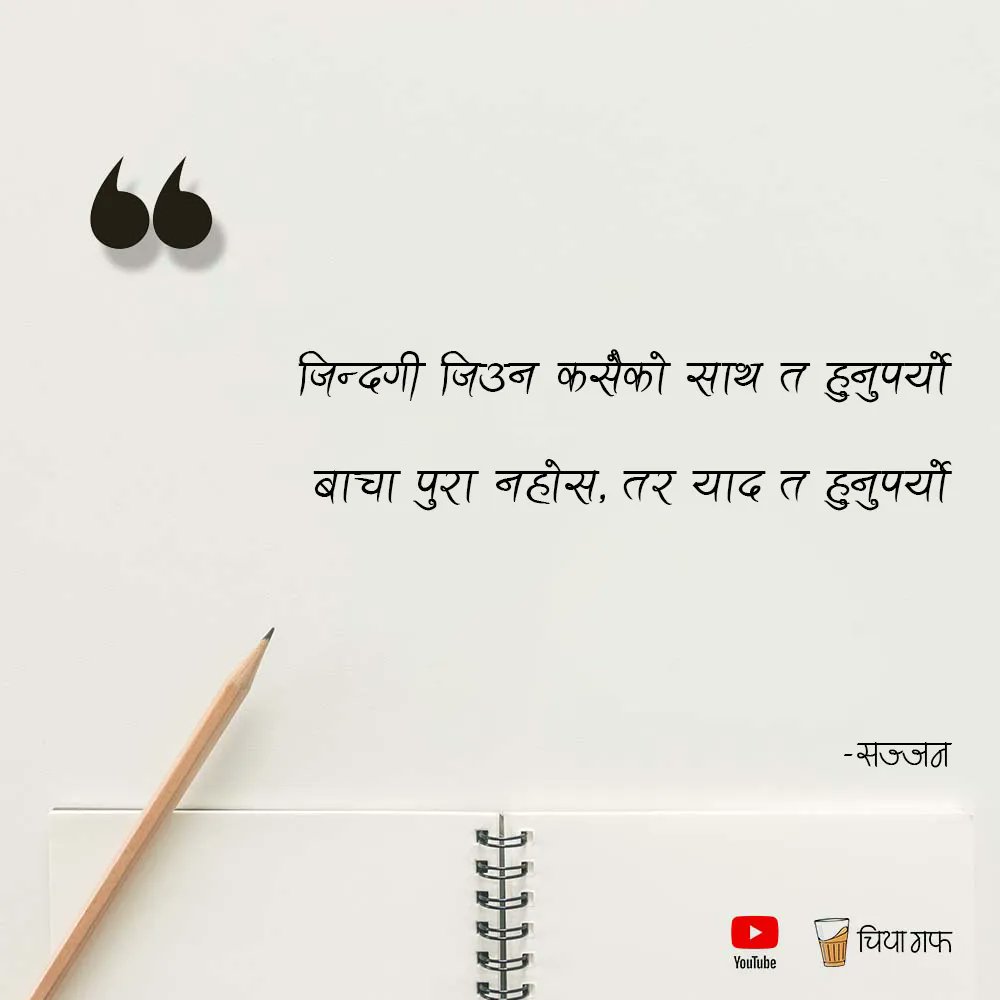 जिन्दगी जिउन कसैको साथ त हुनुपर्यो
बाचा पुरा नहोस, तर याद त हुनुपर्यो
-सज्जन
YouTube
चिया गफ